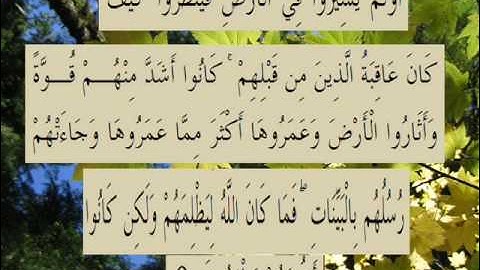 أَوَلَمْ يَسِيرُوا فِي الْأَرْضِ فَيَنْظُرُوا كَيْفَ
كَانَ عَاقِبَةُ الَّذِينَ مِن قَبْلِهِمْ ۚ كَانُوا أَشَدَّ مِنْهُمْ قُوَّةً
وَأَثَارُوا الْأَرْضَ وَعَمَرُوهَا أَكْثَرَ مِمَّا عَمَرُوهَا وَجَاءَتْهُمْ
رُسُلُهُم بِالْبَيِّنَاتِ ۖ فَمَا كَانَ اللَّهُ لِيَظْلِمَهُمْ وَلَٰكِن كَانُوا